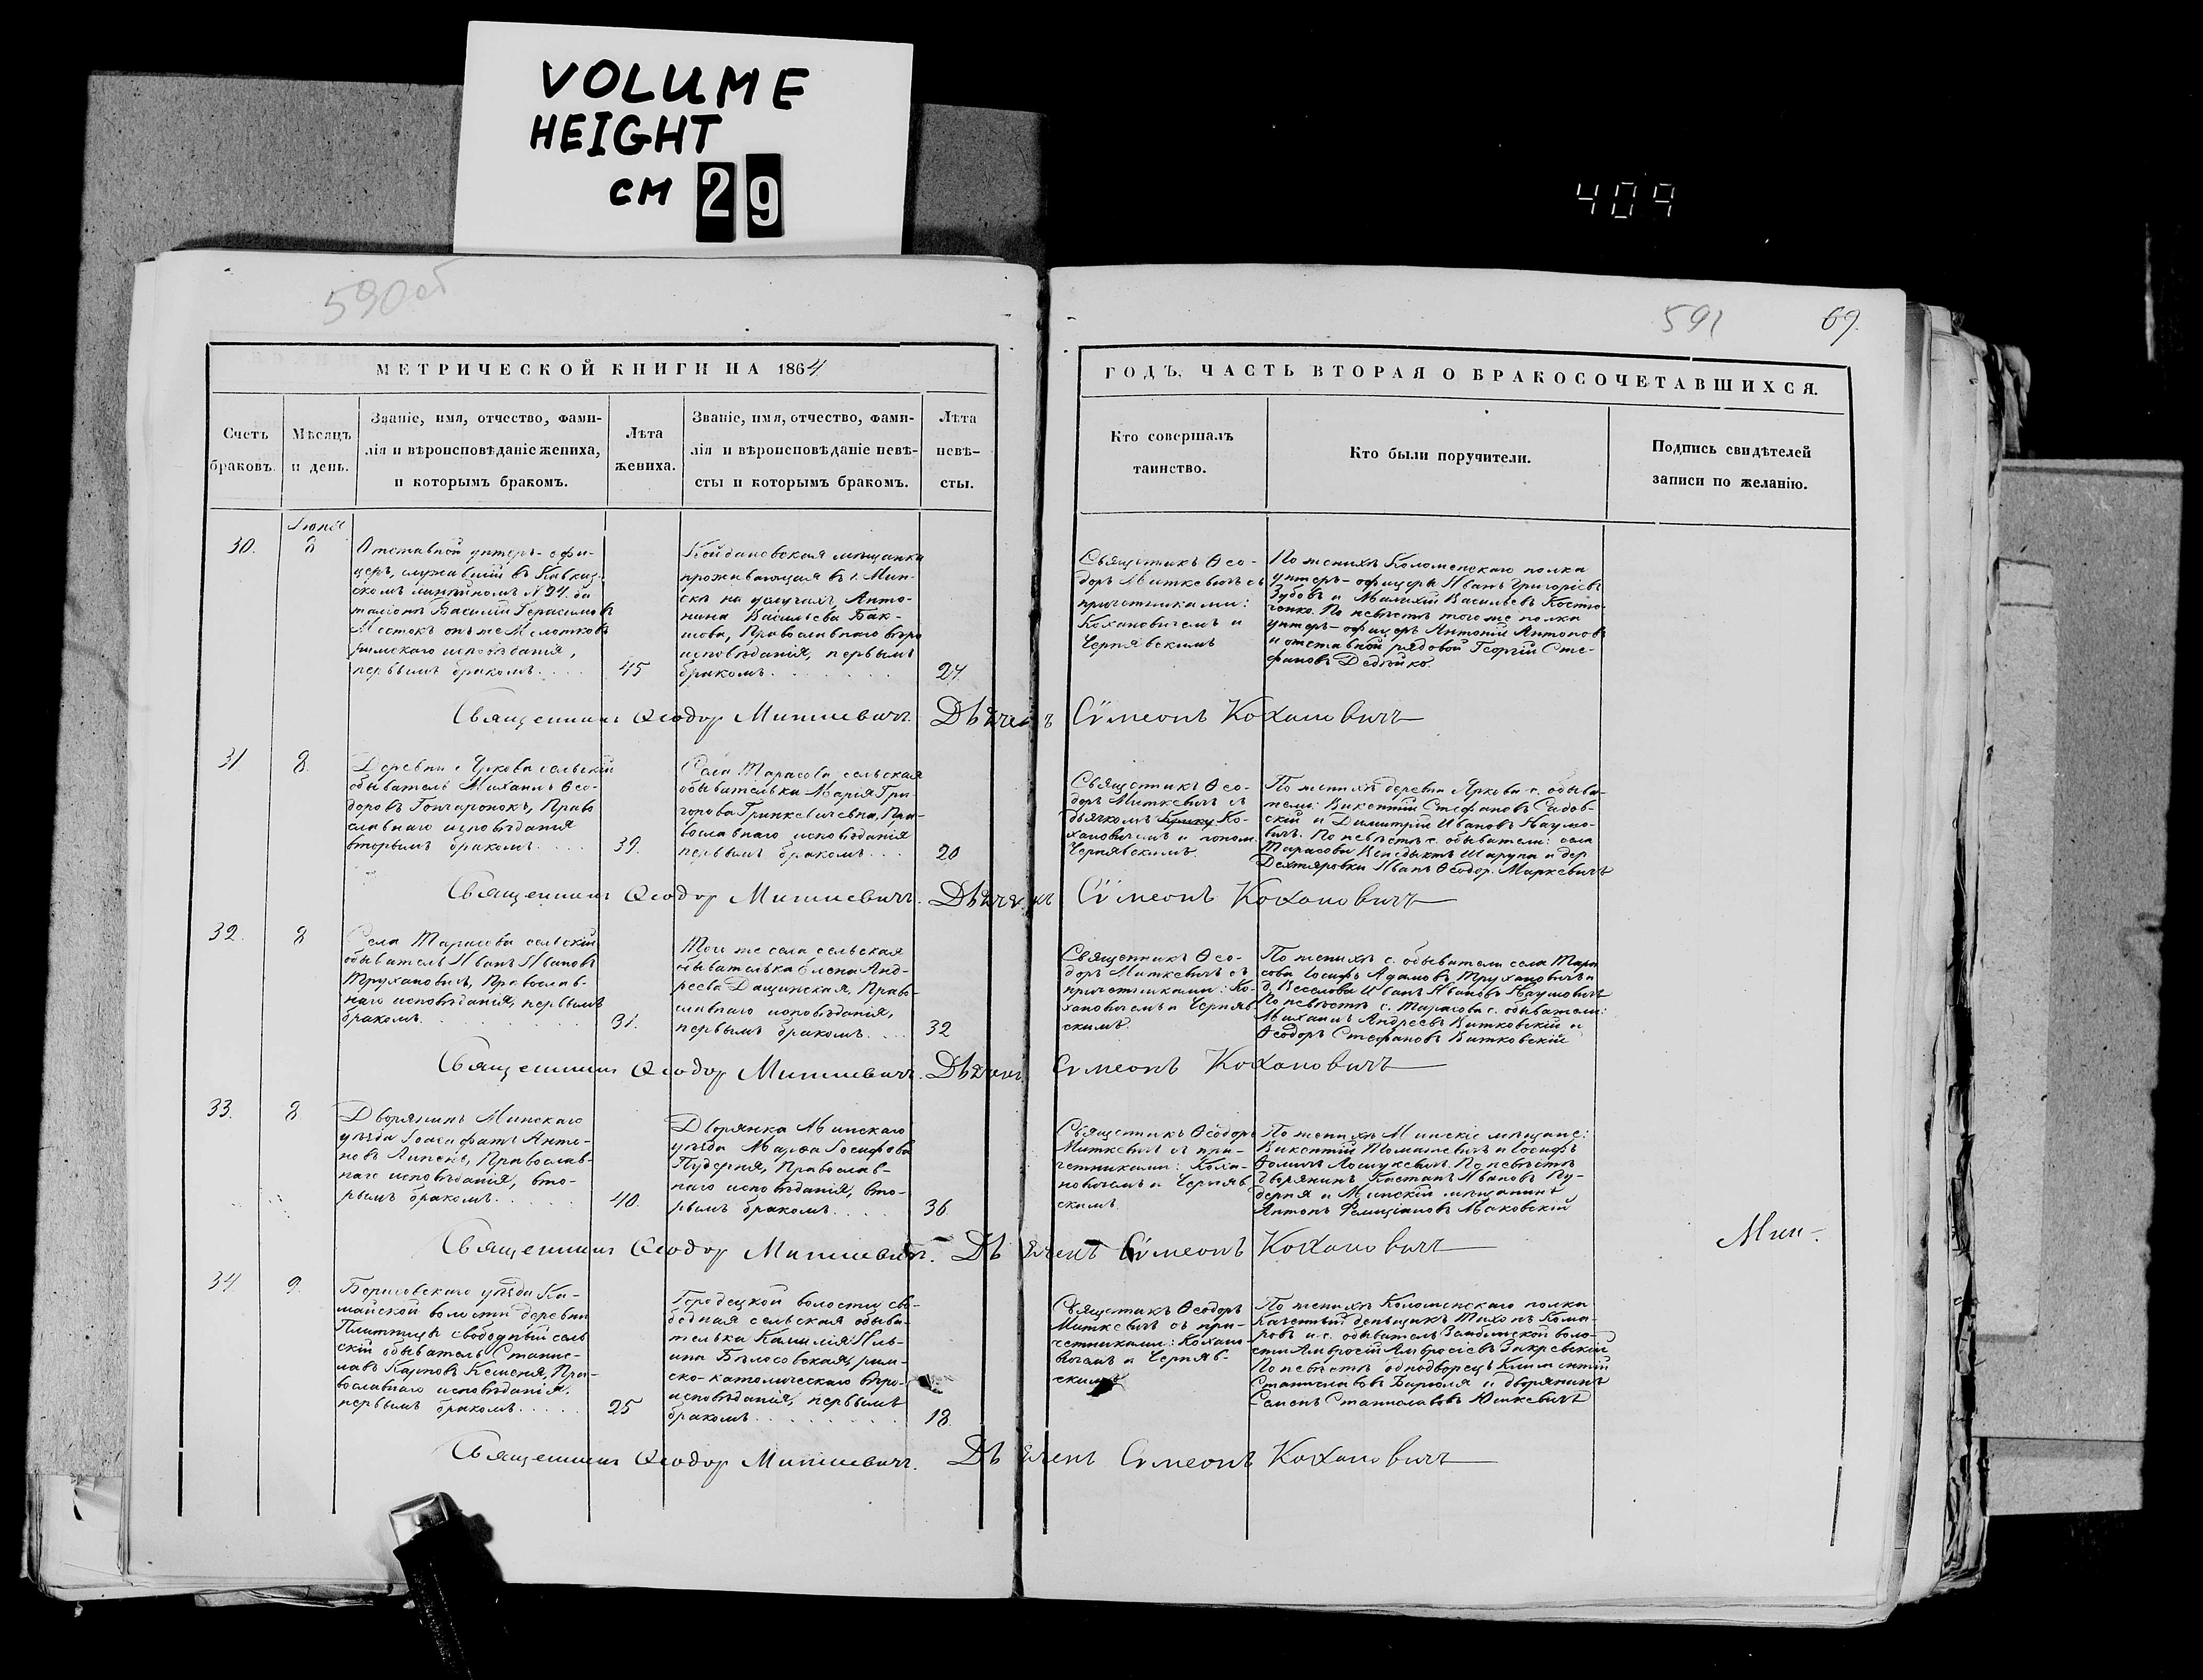 VOLUME
HEIGHT
CM 29
409
590об
591
69.
МЕТРИЧЕСКОЙ КНИГИ НА 1864
ГОДЪ, ЧАСТЬ ВТОРАЯ О БРАКОСОЧЕТАВШИХСЯ.
Счетъ
браковъ.
Мѣсяцъ
и день.
Званіе, имя, отчество, фами-
лія и вѣроисповѣданіе жениха,
и которымъ бракомъ.
Лѣта
жениха.
Званіе, имя, отчество, фами-
лія и вѣроисповѣданіе невѣ-
сты и которымъ бракомъ.
Лѣта
невѣ-
сты.
Кто совершалъ
таинство.
Кто были поручители.
Подпись свидѣтелей
записи по желанію.
30.
8
Отставной унтеръ-офи-
церъ, служившій въ Кавказ-
скомъ линейномъ № 24 ба
таліонѣ Василій Герасимовъ
римскаго исповѣданія,
первымъ бракомъ....
45
Койдановская мѣщанка
проживающая въ г. Мин-
скѣ на услугахъ, Анто-
нина Васильева Бак-
Православнаго вѣро
исповѣданія, первымъ
бракомъ.......
24
Священникъ Ѳео-
доръ Миткевичъ съ
причетниками:
Кохановичемъ и
Чернявскимъ
По женихѣ Коломенскаго полка
унтеръ-офицеръ Иванъ Григорьевъ
Зубовъ и Васильевъ Костю-
ченко. По невѣстѣ того же полка
унтеръ-офицеръ Антоній Антоновъ
и отставной рядовой Георгій Сте-
фановъ
Священникъ Ѳеодор Миткевичъ. Дьячекъ Сѵмеонъ Кохановичъ
31
8.
Деревни Яркова сельскій
обыватель Михаилъ Ѳео-
доровъ Гончаронокъ, Право
славнаго исповѣданія
вторымъ бракомъ....
39.
Села Тарасова сельская
обывателька Марія Гри-
горова Гринкевичевна, Пра-
вославнаго исповѣданія
первымъ бракомъ...
20
Священникъ Ѳео-
доръ Миткевичъ съ
дьячкомъ Ко-
хановичемъ и
Чернявскимъ.
По женихѣ деревни Яркова с. обыва-
тели: Викентій Стефановъ Садов-
скій и Димитрій Ивановъ Наумо-
вичъ. По невѣстѣ с. обыватели: села
Тарасова Венедыктъ Шарупа и дер
Дехтяровки Иванъ Ѳеодор. Маркевичъ
Священникъ Ѳеодор Миткевичъ. Дьячекъ Сѵмеонъ Кохановичъ
32.
8
Села Тарасова сельскій
обыватель Иванъ Ивановъ
Трухановичъ, Православ-
наго исповѣданія, первымъ
бракомъ.
31.
Того же села сельская
обывателька Елена Анд-
реева Дащинская, Право-
славнаго исповѣданія,
первымъ бракомъ....
32
Священникъ Ѳео-
доръ Миткевичъ съ
причетниками: Ко-
хановичемъ и Черняв-
скимъ.
По женихѣ с. обыватели села Тара
сова Іосифъ Адамовъ Трухановичъ и
д. Веселова Иванъ Ивановъ Наумовичъ
По невѣстѣ с. Тарасова с. обыватели:
Михаилъ Андреевъ Витковскій и
Ѳеодоръ Стефановъ Витковскій
Священникъ Ѳеодор Миткевичъ. Дьячекъ Сѵмеонъ Кохановичъ
33.
8
Дворянинъ Минскаго
уѣзда Іоасафатъ Анто-
новъ Православ-
наго исповѣданія, вто-
рымъ бракомъ.....
40.
Дворянка Минскаго
уѣзда Марѳа Іосифова
Пудерня, Православ-
наго исповѣданія, вто-
рымъ бракомъ....
36
Священникъ Ѳеодоръ
Миткевичъ съ при-
четниками: Коха-
новичемъ и Черняв
скимъ.
По женихѣ Минскіе мѣщане:
Викентій Томашевичъ и Іосифъ
Ѳоминъ По невѣстѣ
дворянинъ Ивановъ Пу-
дерня и Минскій мѣщанинъ
Антонъ Фелиціановъ Маковскій
Священникъ Ѳеодор Миткевичъ. Дьячекъ Сѵмеонъ Кохановичъ
Мин-
34
9.
Борисовскаго уѣзда
волости деревни
свободный сель
скій обыватель Станис-
лавъ Карповъ Пра-
вославнаго исповѣданія,
первымъ бракомъ.....
25
Городецкой волости сво-
бодная сельская обыва-
телька Камилія
рим-
ско-католическаго вѣро-
исповѣданія, первымъ
бракомъ.........
18.
Священникъ Ѳеодоръ
Миткевичъ съ при-
четниками: Кохано-
вичемъ и Черняв-
скимъ
По женихѣ Коломенскаго полка
Казенный деньщикъ Тихонъ Кома-
ровъ и с. обыватель Замбинской воло-
сти Амвросій Амвросіевъ Закревскій
По невѣстѣ однодворецъ
Станиславовъ и дворянинъ
Семенъ Станиславовъ Юшкевичъ
Священникъ Ѳеодор Миткевичъ. Дьячекъ Сѵмеонъ Кохановичъ